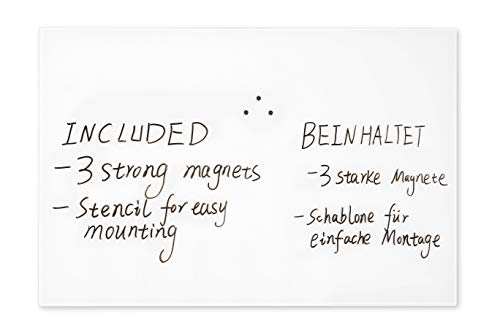 INCLUDED
- 3 strong magnets
- Stencil for easy
mounting
BEINHALTET
- 3 starke Magnete
- Schablone für
einfache Montage